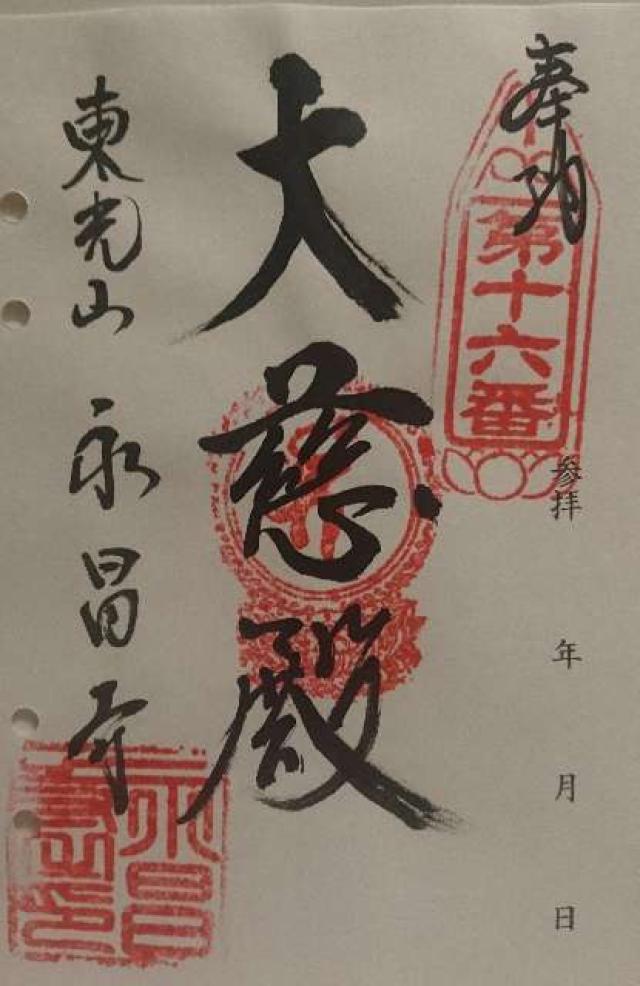 奉納
第十六番
参拝 年 月 日
大慈殿
東光山 永昌寺
永昌